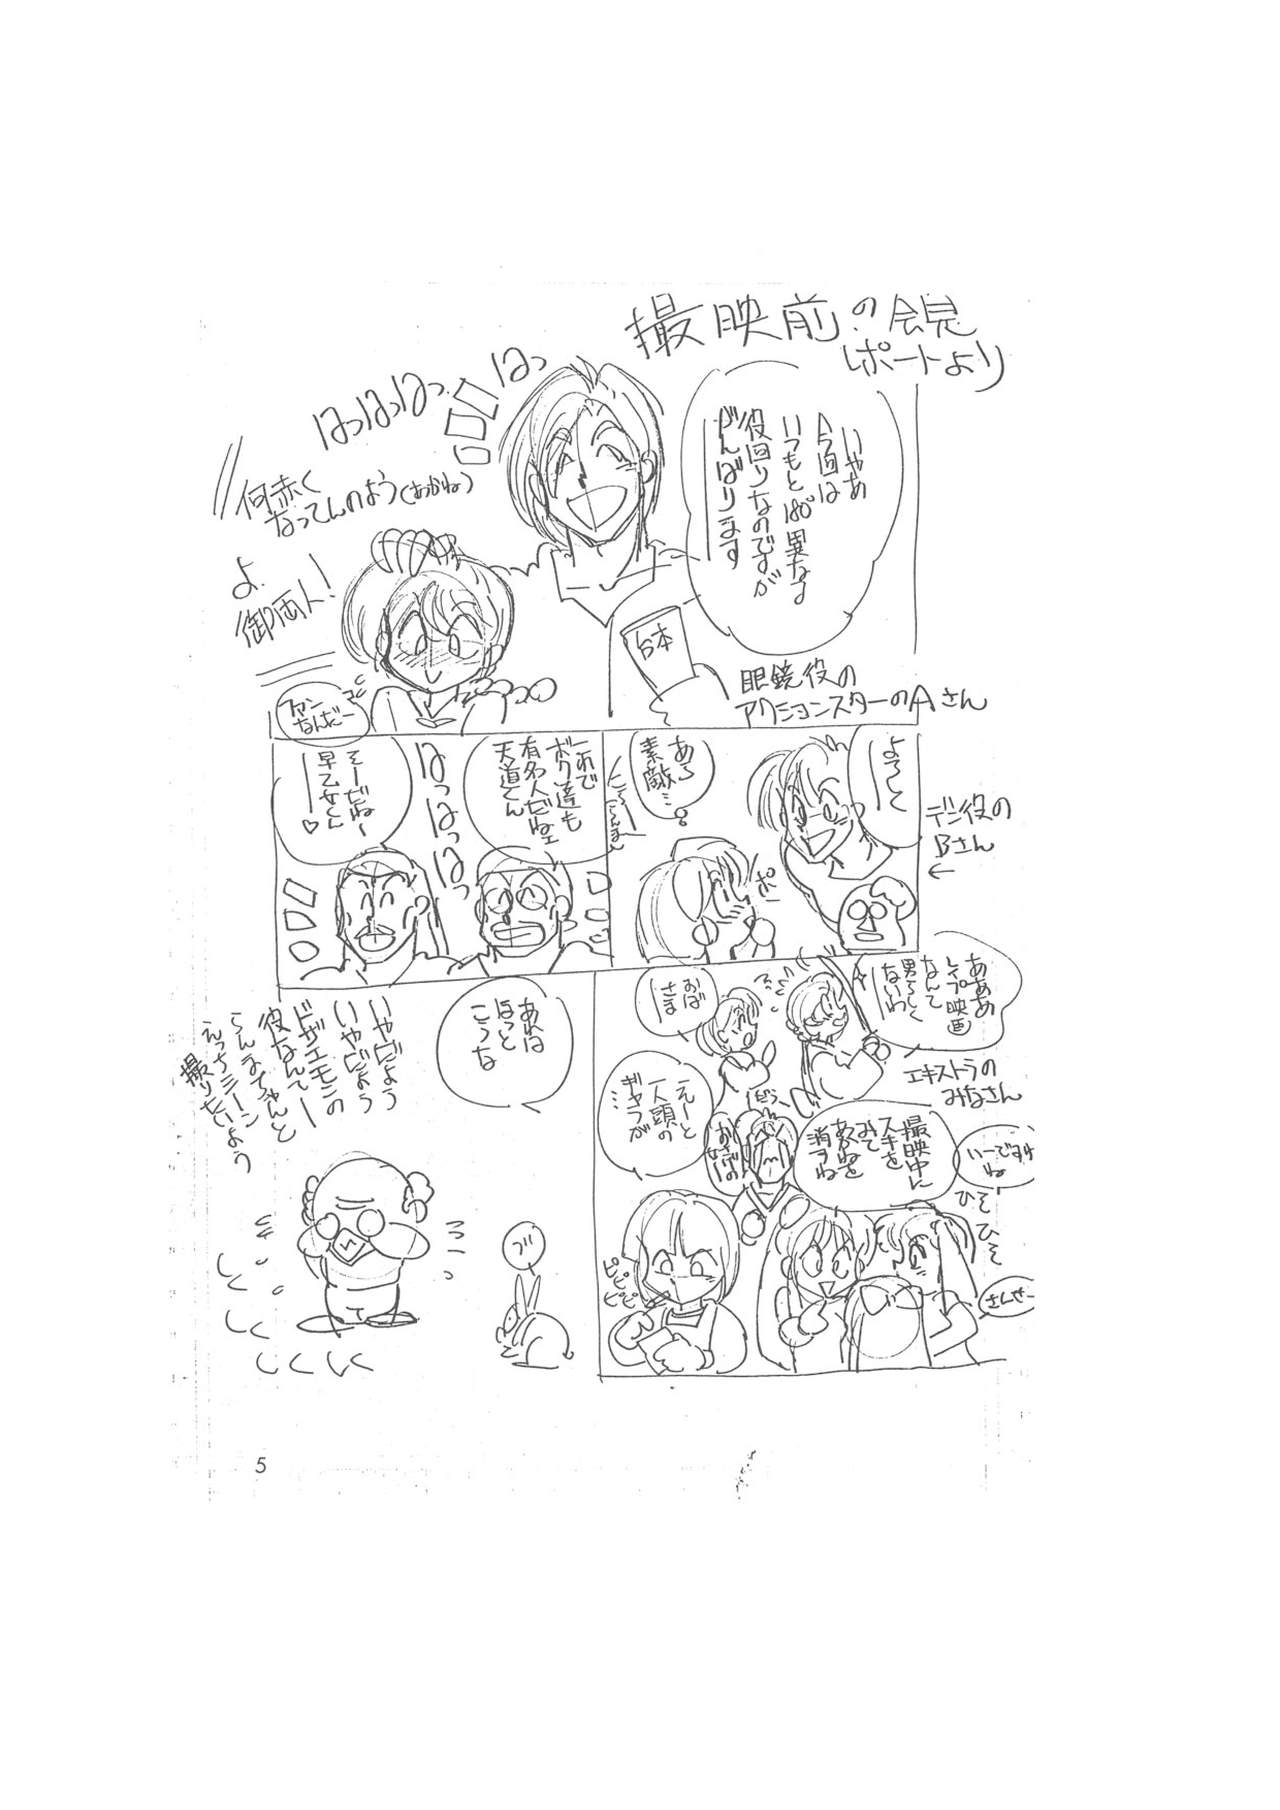 撮映前の会見
レポートより
いやあ
今回は
いつもと180°異なる
役回りなのですが
がんばります
はっはっはっはっ
何赤く
なってんのよう(あかね)
よ
御両人!
ファン
なんだー
台本
眼鏡役の
アクションスターのAさん
よろしく
デン役の
Bさん
あら
素敵…
ポー
これで
ボク達も
有名人だねェ
天道くん
はっはっはっ
そーだねー
早乙女くん
♡
あああ
レイプ映画
なんて
男らしく
ないわ
エキストラの
みなさん
おば
さま
えーと
一人頭の
ギャラが
…
撮映中に
スキを
みて
あかねを
消すね
いーですわ
ね
ひそ
ひそ
さんせー
ピピピ
ピピ
あれは
ほっと
こうな
いやじゃよう
いやじゃよう
ドザエモンの
役なんてー
らんまちゃんと
えっちシーン
撮りたいよう
ブ
5